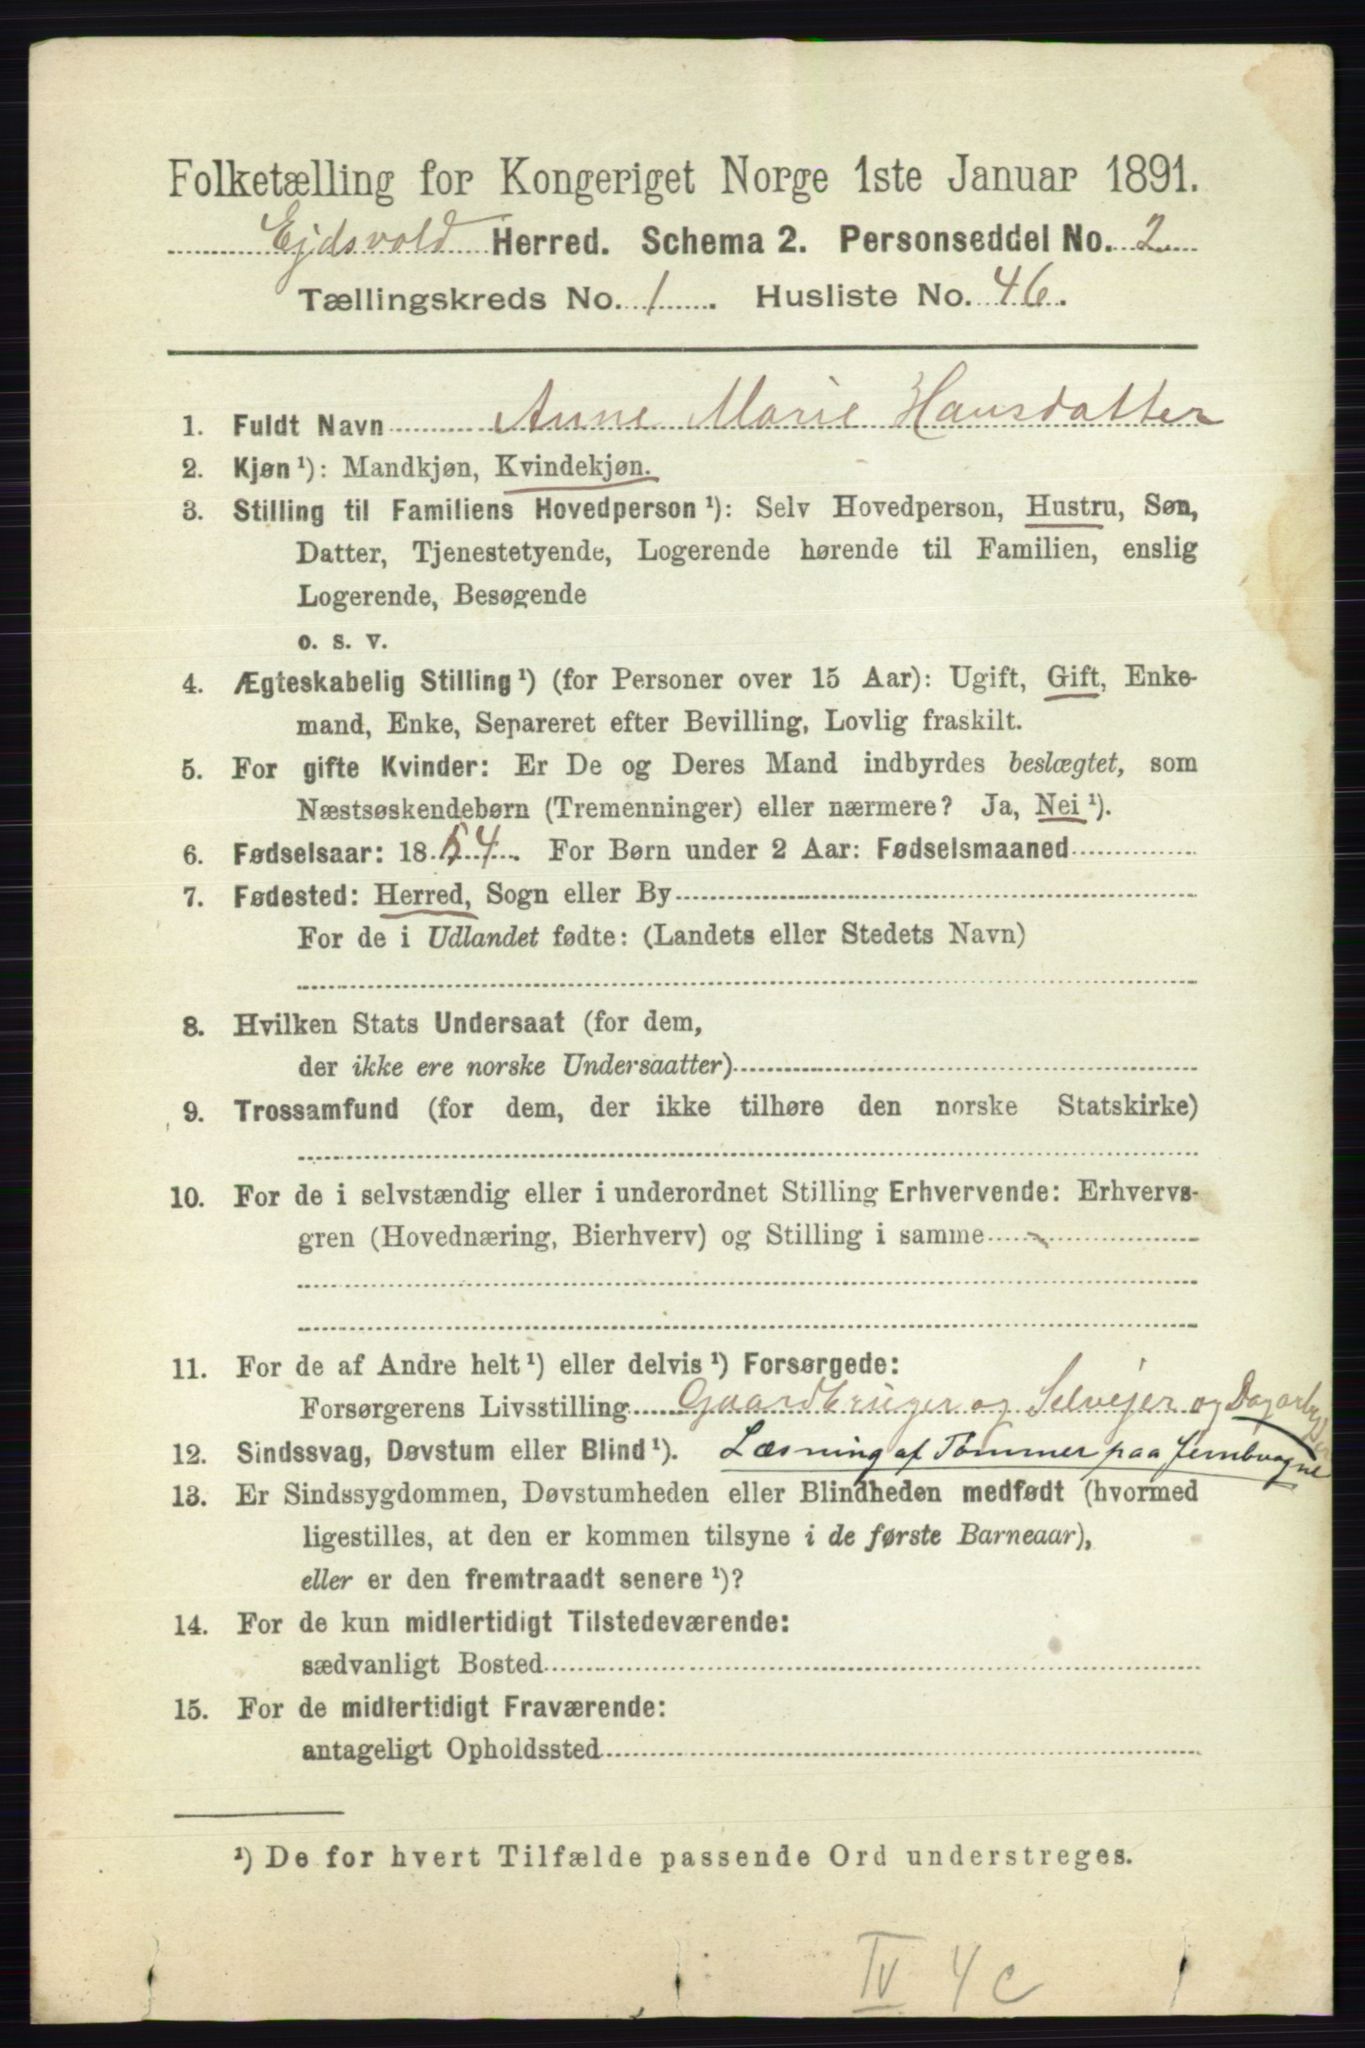 Folketælling for Kongeriget Norge 1ste Januar 1891.
Ejdsvold Herred. Schema 2. Personseddel No. 2
Tællingskreds No. 1. Husliste No. 46.
1. Fuldt Navn Anne Marie Hansdatter
2. Kjøn ¹): Mandkjøn, Kvindekjøn.
3. Stilling til Familiens Hovedperson ¹): Selv Hovedperson, Hustru, Søn,
Datter, Tjenestetyende, Logerende hørende til Familien, enslig
Logerende, Besøgende
o. s. v.
4. Ægteskabelig Stilling ¹) (for Personer over 15 Aar): Ugift, Gift, Enke-
mand, Enke, Separeret efter Bevilling, Lovlig fraskilt.
5. For gifte Kvinder: Er De og Deres Mand indbyrdes beslægtet, som
Næstsøskendebørn (Tremenninger) eller nærmere? Ja, Nei ¹).
6. Fødselsaar: 1854. For Børn under 2 Aar: Fødselsmaaned
7. Fødested: Herred, Sogn eller By
For de i Udlandet fødte: (Landets eller Stedets Navn)
8. Hvilken Stats Undersaat (for dem,
der ikke ere norske Undersaatter)
9. Trossamfund (for dem, der ikke tilhøre den norske Statskirke)
10. For de i selvstændig eller i underordnet Stilling Erhvervende: Erhvervs-
gren (Hovednæring, Bierhverv) og Stilling i samme
11. For de af Andre helt ¹) eller delvis ¹) Forsørgede:
Forsørgerens Livsstilling Gaardbruger og Selvejer og Dagarbejder
12. Sindssvag, Døvstum eller Blind ¹). Læsning af Tømmer paa Jernbvogne
13. Er Sindssygdommen, Døvstumheden eller Blindheden medfødt (hvormed
ligestilles, at den er kommen tilsyne i de første Barneaar),
eller er den fremtraadt senere ¹)?
14. For de kun midlertidigt Tilstedeværende:
sædvanligt Bosted
15. For de midlertidigt Fraværende:
antageligt Opholdssted
¹) De for hvert Tilfælde passende Ord understreges.
IV 4c